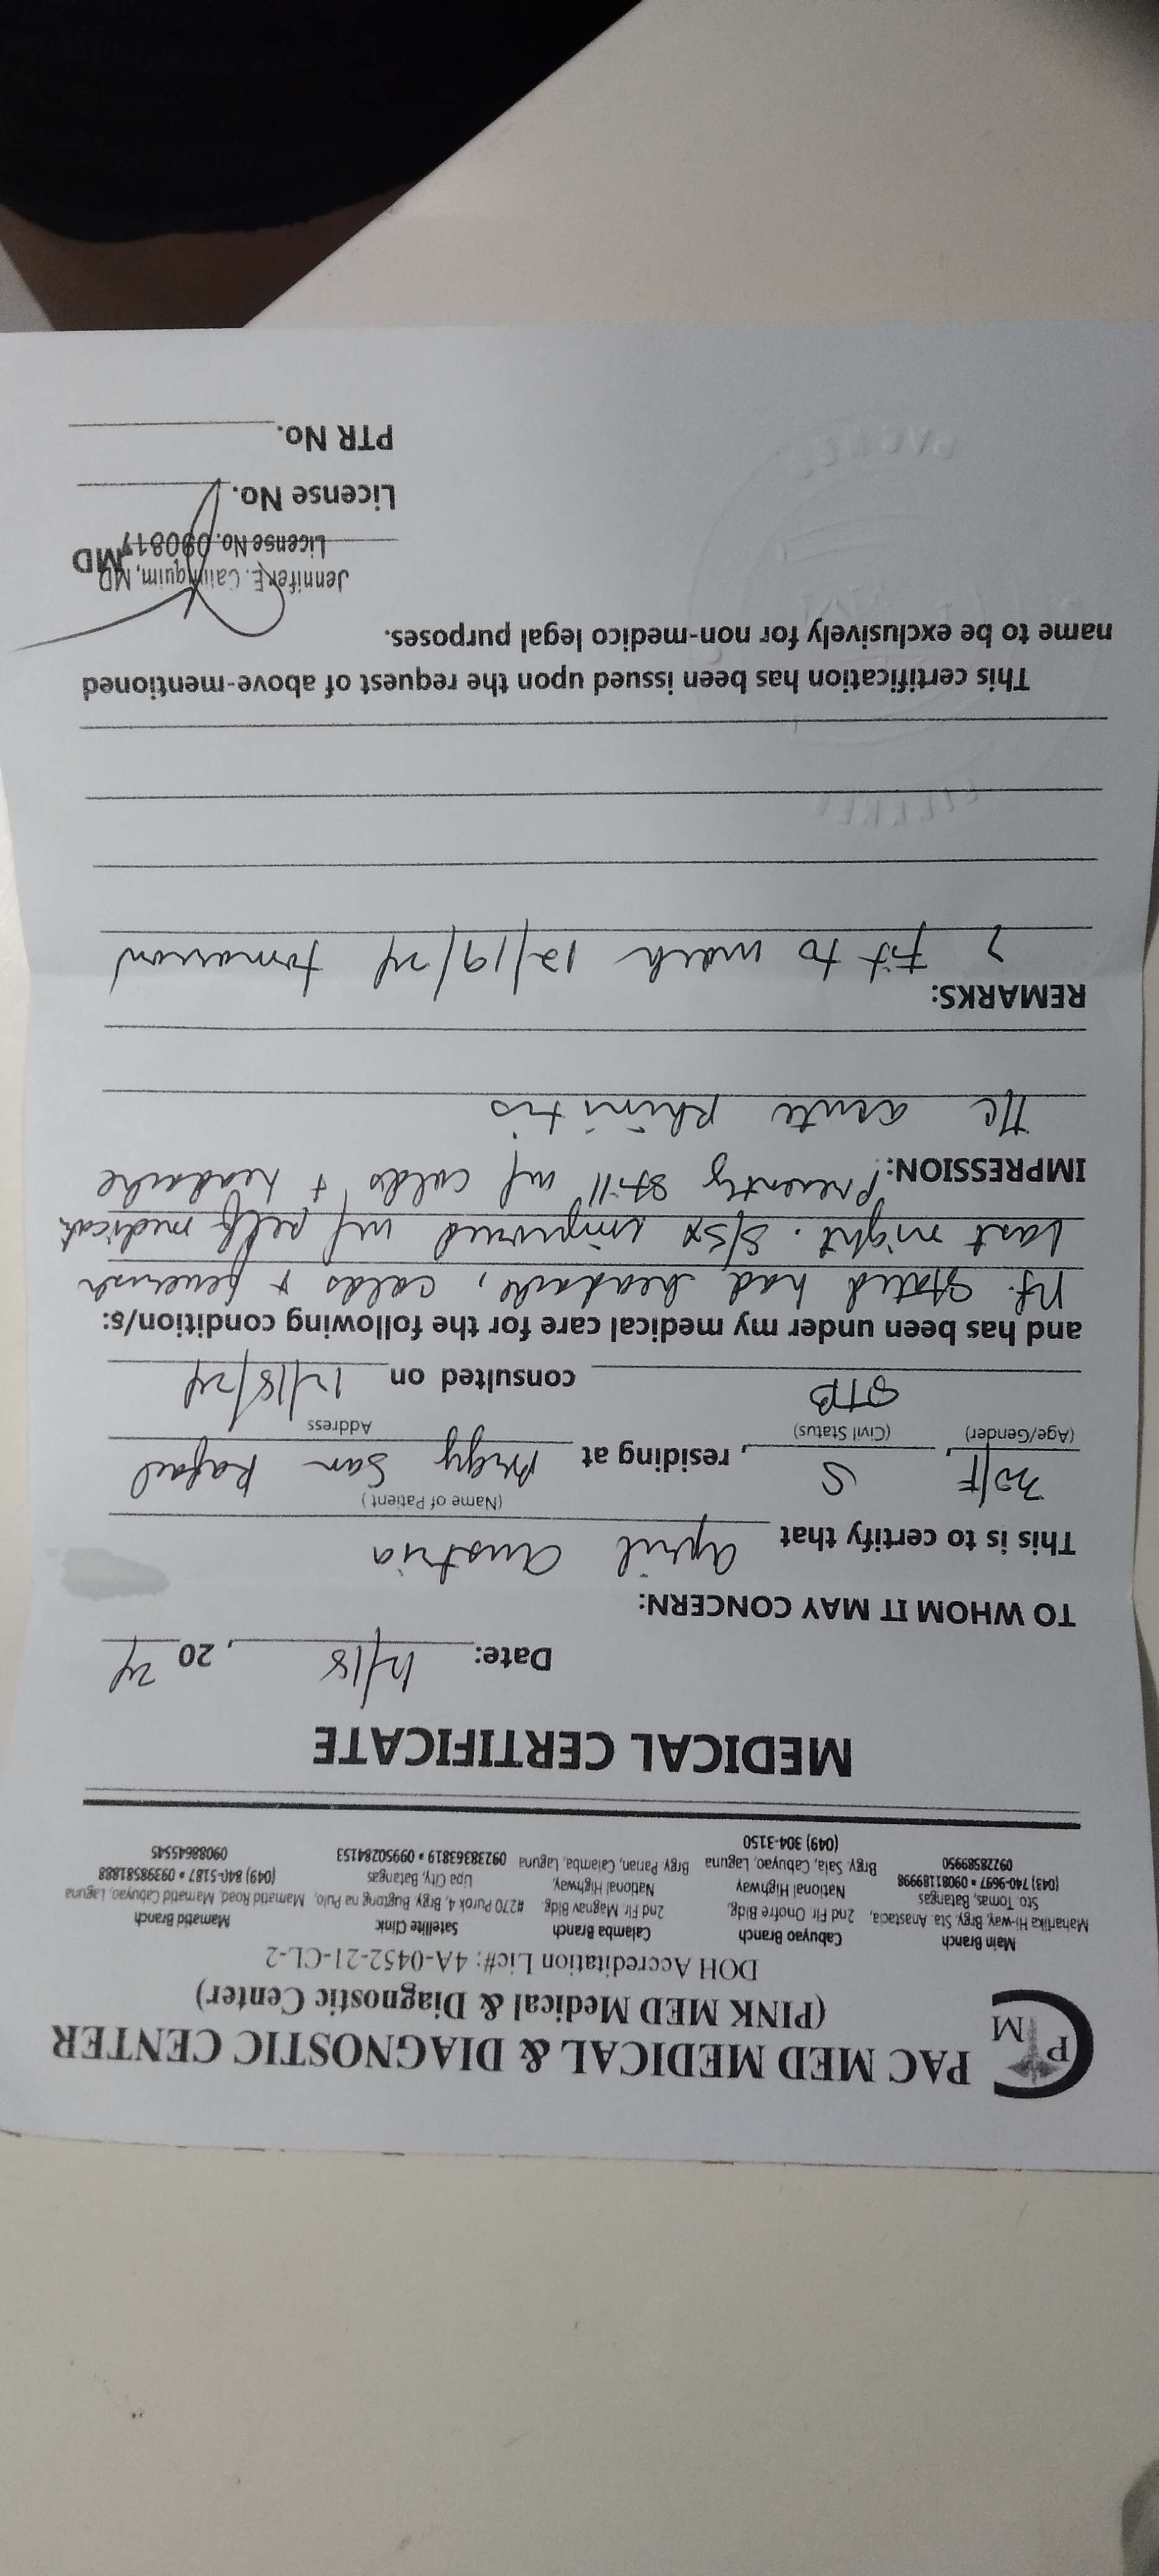 PAC MED MEDICAL & DIAGNOSTIC CENTER
(PINK MED Medical & Diagnostic Center)
DOH Accreditation Lic#: 4A-0452-21-CL-2
P M
Main Branch
Maharlika Hi-way, Brgy. Sta. Anastacia,
Sto. Tomas, Batangas
(043) 740-9697 • 09081189998
09228589950
Cabuyao Branch
2nd Flr. Onofre Bldg,
National Highway
Brgy. Sala, Cabuyao, Laguna
(049) 304-3150
Calamba Branch
2nd Flr. Magnav Bldg.
National Highway,
Brgy. Parian, Calamba, Laguna
Satellite Clinic
#270 Purok 4, Brgy. Bugtong na Pulo,
Lipa City, Batangas
09238363819 • 09950284153
Mamatid Branch
Mamatid Road, Mamatid Cabuyao, Laguna
(049) 840-5187 • 09398581888
09088645545
MEDICAL CERTIFICATE
Date: 12/18, 2024
TO WHOM IT MAY CONCERN:
This is to certify that April Austria
(Name of Patient)
30/F, S, residing at Brgy San Rafael
(Age/Gender) (Civil Status) Address
STB consulted on 12/18/24
and has been under my medical care for the following condition/s:
Pt. stated had headache, colds & feverish
last night. S/Sx improved w/ self medicat
IMPRESSION: Presently still w/ colds + headache
acute rhinitis
REMARKS:
fit to work 12/19/24 tomorrow
This certification has been issued upon the request of above-mentioned
name to be exclusively for non-medico legal purposes.
Jennifer E. MD
License No. MD
License No.
PTR No.